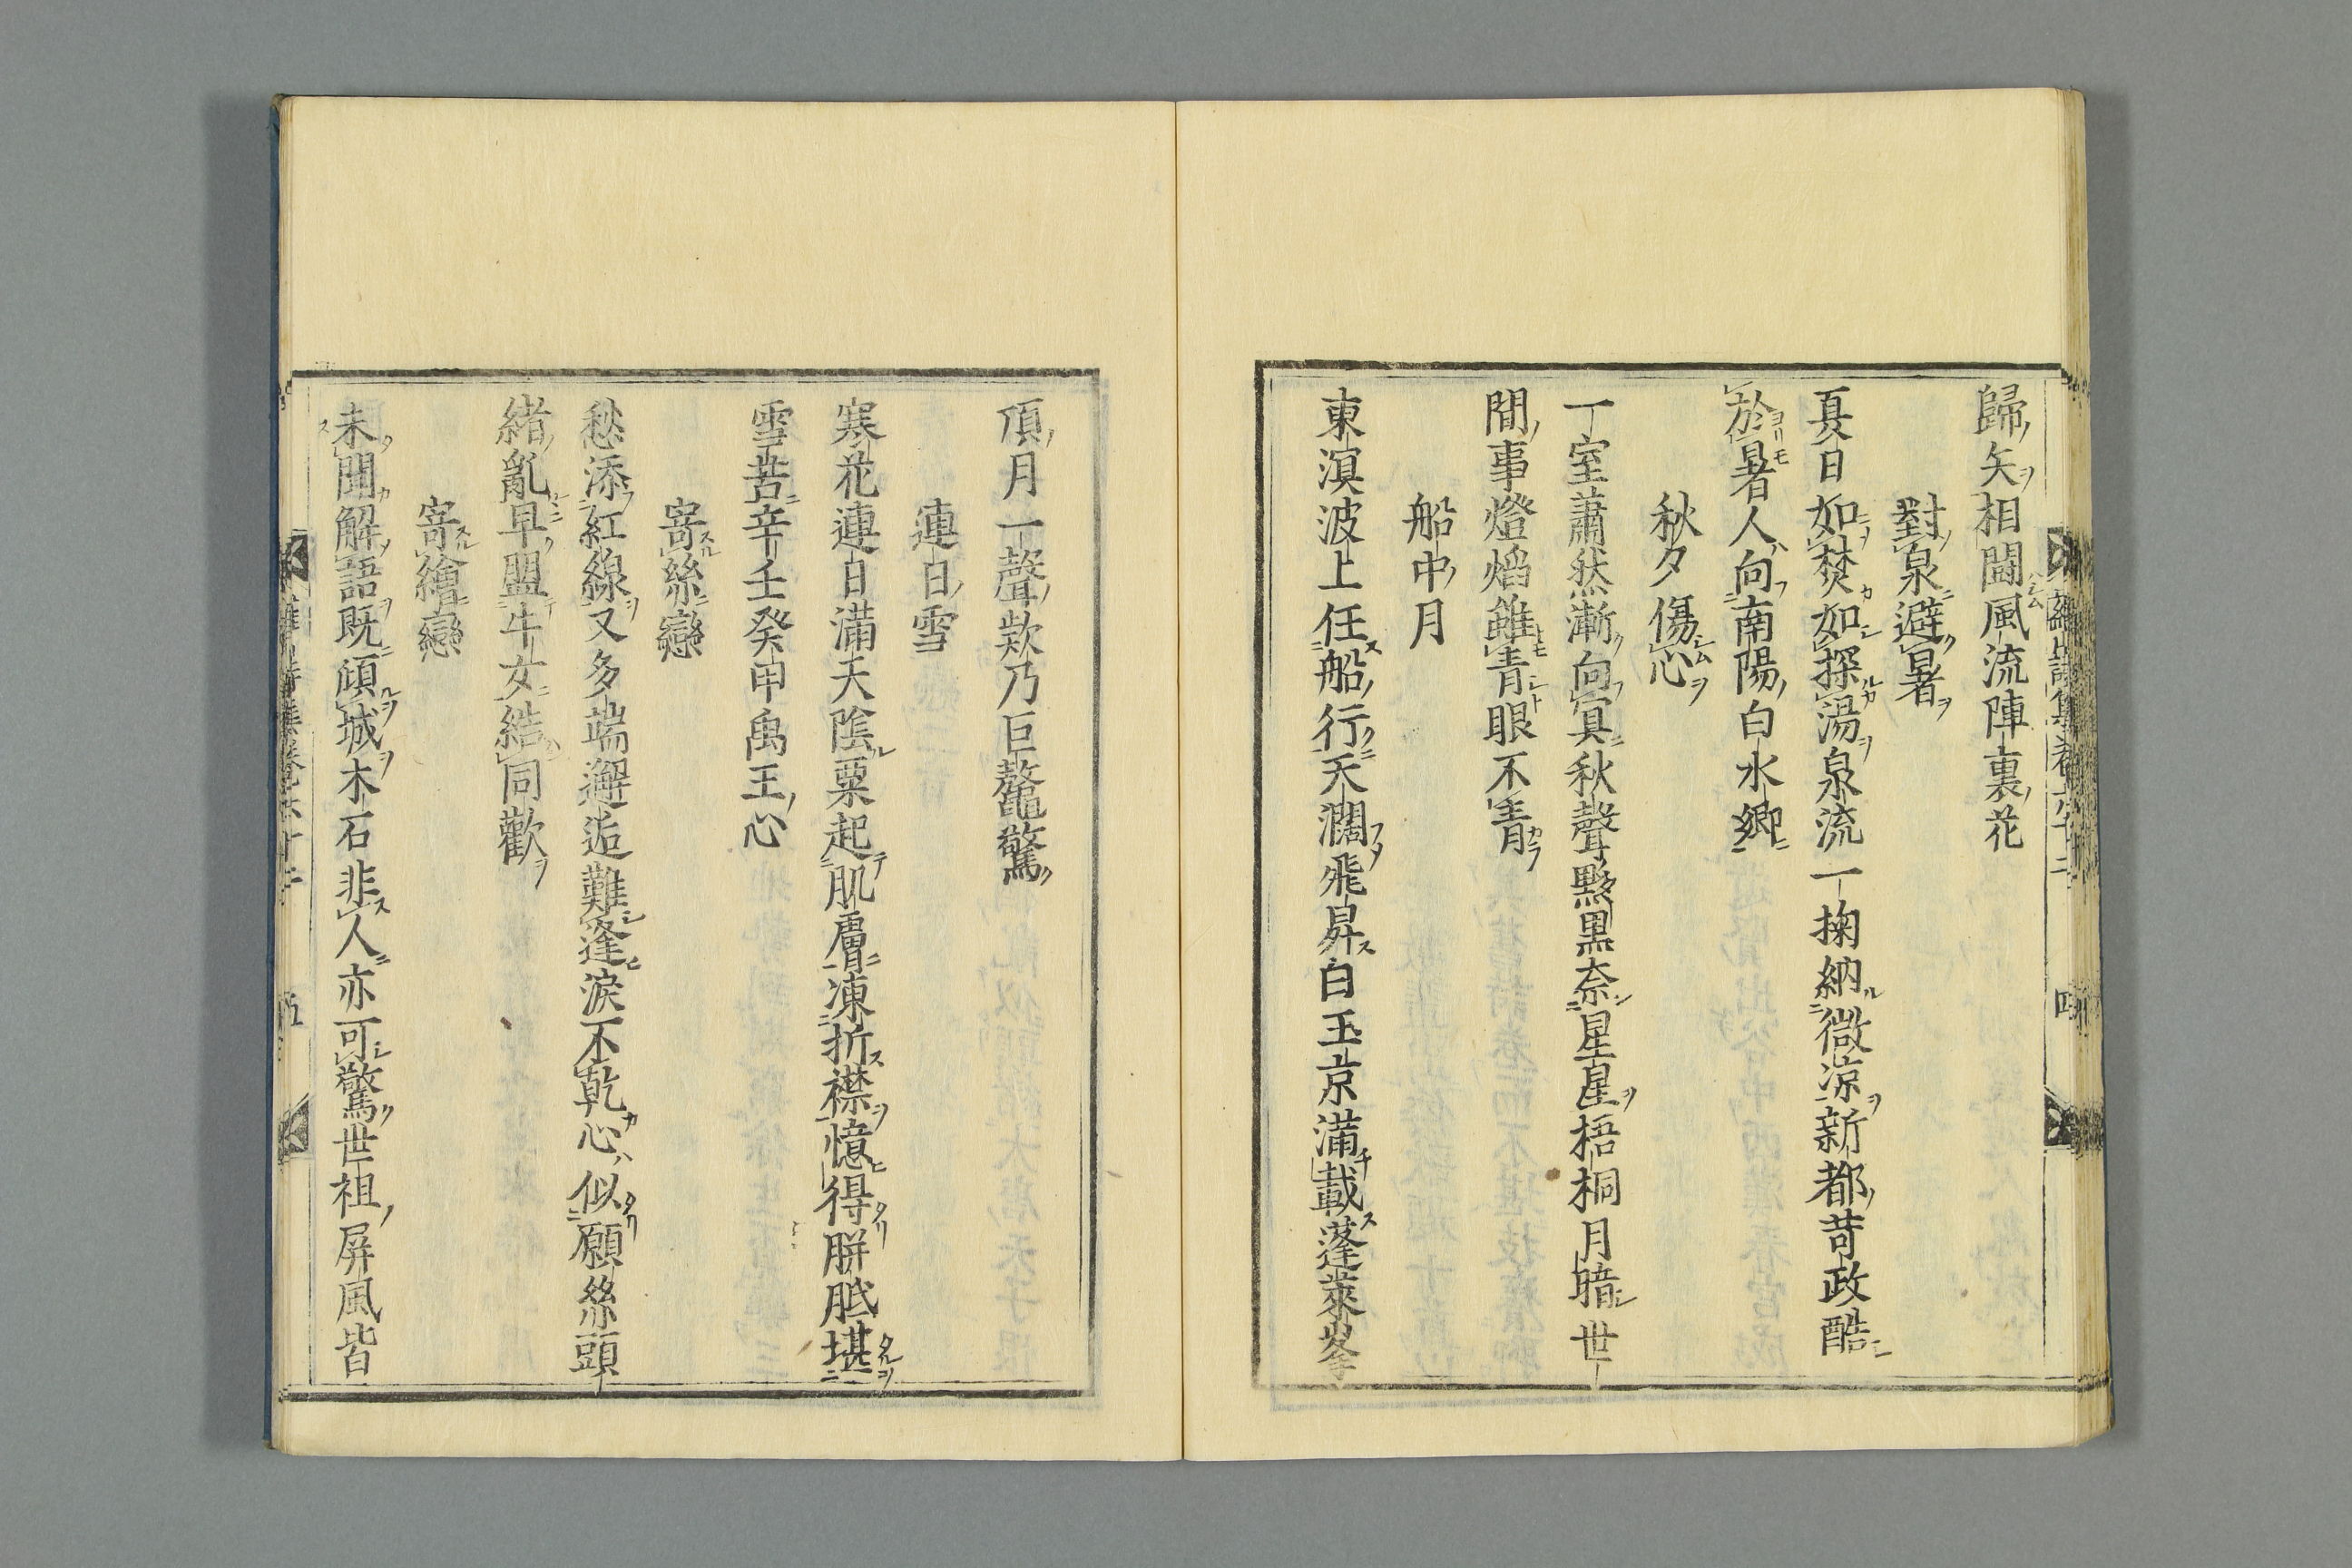 歸矢相鬪風流陣裏花
對泉避暑
夏日如焚如探湯泉流一掬納微涼新都苛政酷
於暑人向南陽白水鄉
秋夕傷心
一室蕭然漸向冥秋聲黯黑奈星星梧桐月暗世
間事燈熖雖青眼不青
船中月
東溟波上任船行天濶飛昇白玉京滿載蓬萊峯
頂月一聲欸乃巨鼇驚
連日雪
寒花連日滿天陰粟起肌膚凍折襟憶得胼胝堪
雪苦辛壬癸甲禹王心
寄絲戀
愁添紅線又多端邂逅難逢淚不乾心似願絲頭
緒亂早盟牛女結同歡
寄繪戀
未聞解語既傾城木石非人亦可驚世祖屏風皆